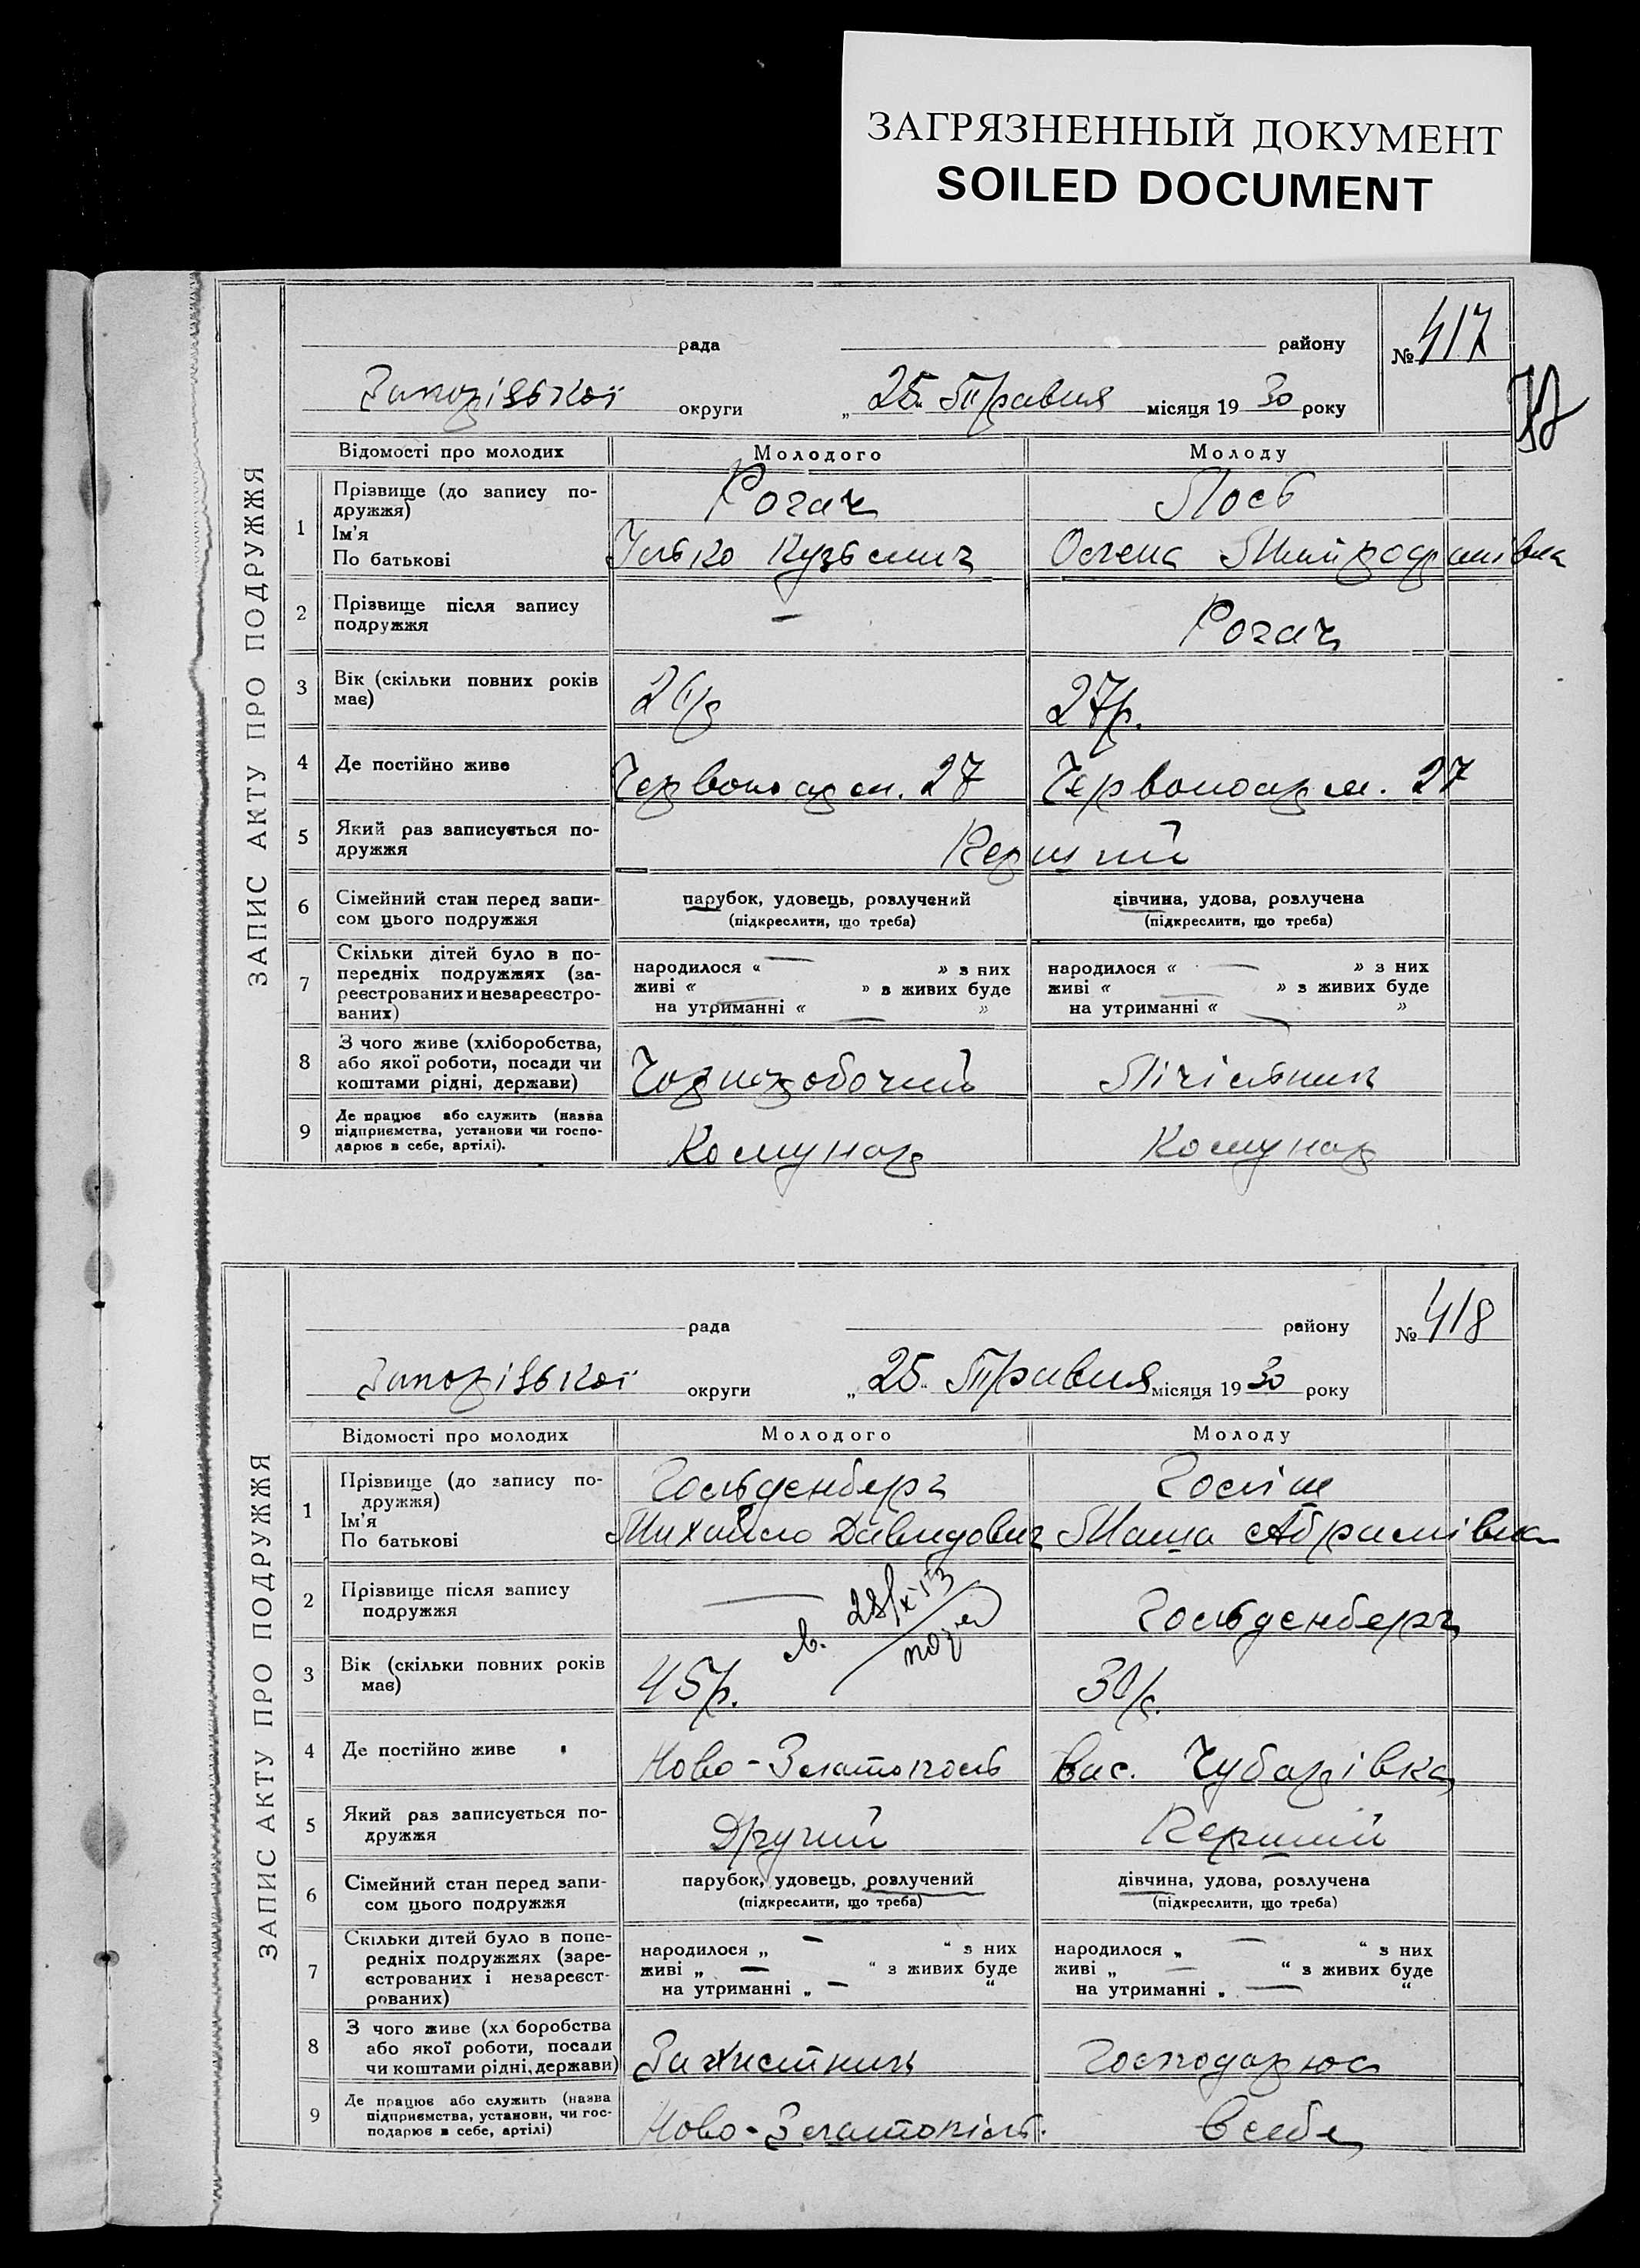 ЗАГРЯЗНЕННЫЙ ДОКУМЕНТ
SOILED DOCUMENT
ЗАПИС АКТУ ПРО ПОДРУЖЖЯ
рада району № 417
Запорізької округи „25“ Травня місяця 1930 року
Відомості про молодих Молодого Молоду
1 Прізвище (до запису по-
дружжя) Рогач Лось
Ім'я
По батькові Ілько Кузьмич Олена
2 Прізвище після запису
подружжя – Рогач
3 Вік (скільки повних років
має) 27р.
4 Де постійно живе Червоноарм. 27 Червоноарм. 27
5 Який раз записується по-
дружжя Перший
6 Сімейний стан перед запи-
сом цього подружжя
парубок, удовець, розлучений
(підкреслити, що треба)
дівчина, удова, розлучена
(підкреслити, що треба)
7 Скільки дітей було в по-
передніх подружжях (за-
реєстрованих и незареєстро-
ваних)
народилося « — » з них
живі « — » з живих буде
на утриманні « — »
народилося « — » з них
живі « — » з живих буде
на утриманні « — »
8 З чого живе (хліборобства,
або якої роботи, посади чи
коштами рідні, держави) Чорноробочий
9 Де працює або служить (назва
підприємства, установи чи госпо-
дарює в себе, артілі). Комунар Комунар
ЗАПИС АКТУ ПРО ПОДРУЖЖЯ
рада району № 418
Запорізької округи „25“ Травня місяця 1930 року
Відомості про молодих Молодого Молоду
1 Прізвище (до запису по-
дружжя) Гольденберг
Ім'я
По батькові Михайло Давидович Маша Абрамівна
2 Прізвище після запису
подружжя — Гольденберг
3 Вік (скільки повних років
має) 45р. 30р.
4 Де постійно живе Ново-Златополь вас. Чубарівка
5 Який раз записується по-
дружжя Другий Перший
6 Сімейний стан перед запи-
сом цього подружжя
парубок, удовець, розлучений
(підкреслити, що треба)
дівчина, удова, розлучена
(підкреслити, що треба)
7 Скільки дітей було в попе-
редніх подружжях (заре-
єстрованих і незареєст-
рованих)
народилося „ — “ з них
живі „ — “ з живих буде
на утриманні „ — “
народилося „ — “ з них
живі „ — “ з живих буде
на утриманні „ — “
8 З чого живе (хл боробства
або якої роботи, посади
чи коштами рідні, держави) Захистник Господарює
9 Де працює або служить (назва
підприємства, установи, чи гос-
подарює в себе, артілі) Ново-Златопіль. в себе